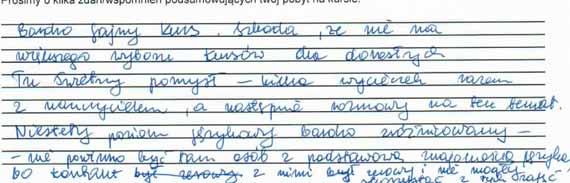 Prosimy o kilka zdań/wspomnień podsumowujących twój pobyt na kursie.
Bardzo fajny kurs. Szkoda, że nie ma
większego wyboru kursów dla dorosłych
Tu świetny pomysł – kilka wycieczek razem
z nauczycielem, a następnie rozmowy na ten temat.
Niestety poziom językowy bardzo zróżnicowany –
– nie powinno być tam osób z podstawową znajomością języka
bo kontakt był z nimi był i nie mogły